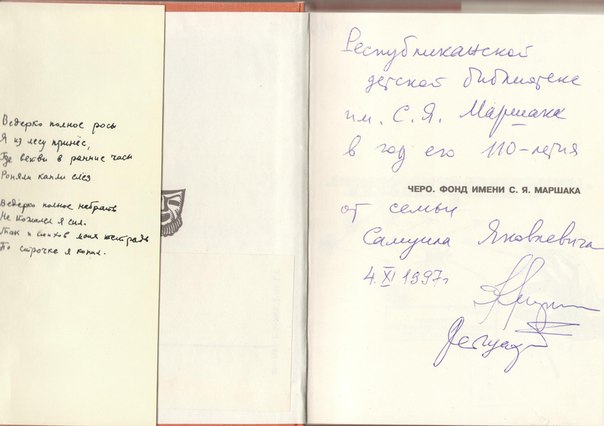 Ведерко полное росы
Я из лесу принёс,
Где ветви в ранние часы
Роняли капли слёз
Ведерко полное набрать
Не пожалел я сил.
Так и стихов моих тетрадь
По строчке я копил.
Республиканской
детской библиотеке
им. С. Я. Маршака
в год его 110-летия
ЧЕРО. ФОНД ИМЕНИ С. Я. МАРШАКА
от семьи
Самуила Яковлевича
4.XI 1997г